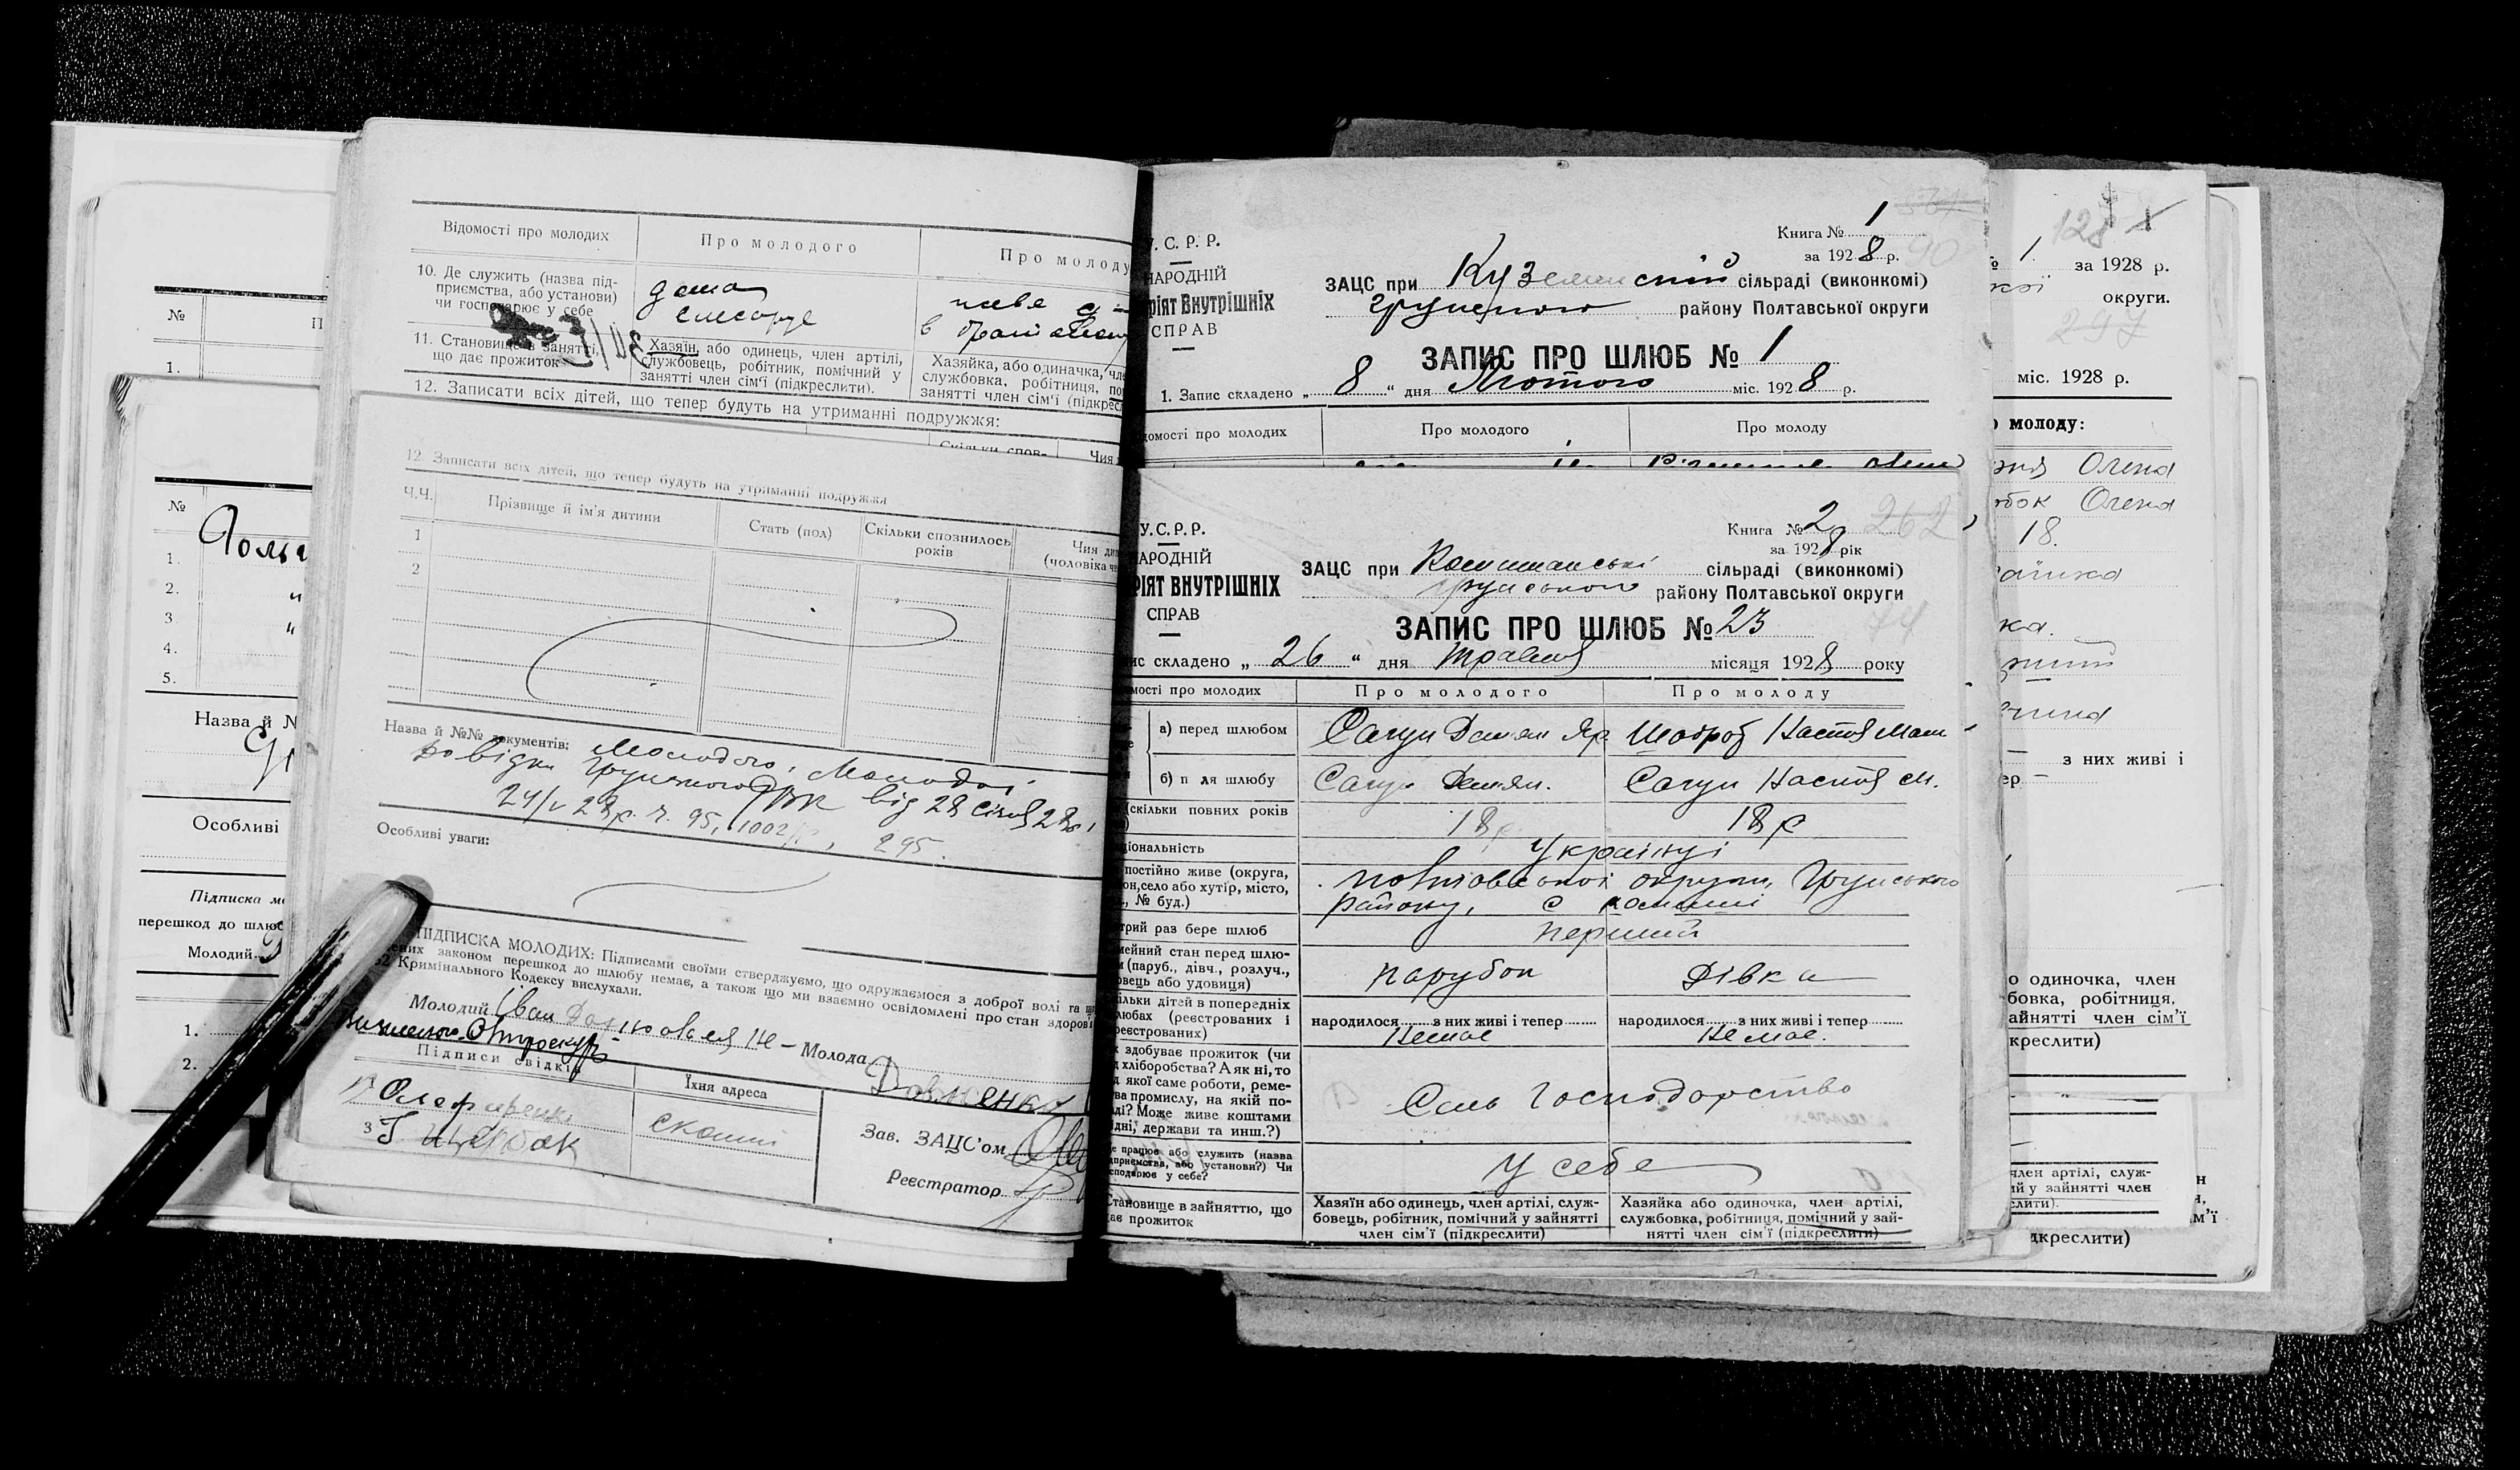 №
П
1.
№
1.
2.
3
4.
5.
Назва й №
Особливі
Підписка м
перешкод до шлюб
Молодий
1.
2.
Відомості про молодих
Про молодого
Про молоду
10. Де служить (назва під-
приємства, або установи)
чи господарює у себе
дома
слесарує
11. Становище в занятті,
що дає прожиток
Хазяїн, або одинець, член артілі,
службовець, робітник, помічний у
занятті член сім'ї (підкреслити).
Хазяйка, або одиначка, чле
службовка, робітниця, по
занятті член сім'ї (підкрес
12. Записати всіх дітей, що тепер будуть на утриманні подружжя:
Скільки спов-
Чия
12 Записати всіх дітей, що тепер будуть на утриманні подружжя
Ч.Ч.
Прізвище й ім'я дитини
Стать (пол)
Скільки спознилось
років
Чия ди
(чоловіка
1
2
Назва й №№ документів: Молодого, Молодої
довідки Грунського РВК від 28 січня 28р.
24/V 28р. ч. 95, 1002/, 295.
Особливі уваги:
ПІДПИСКА МОЛОДИХ: Підписами своїми стверджуємо, що одружаємося з доброї волі та
законом перешкод до шлюбу немає, а також що ми взаємно освідомлені про стан здоров'я
Кримінального Кодексу вислухали.
Молодий Іван
Молода Довженко
Підписи свідків
Їхня адреса
Щербак
Зав. ЗАЦС'ом
Реєстратор
У. С. Р. Р.
НАРОДНІЙ
РІЯТ ВНУТРІШНІХ
СПРАВ
Книга № 1
за 1928 р.
90
ЗАЦС при Куземинській сільраді (виконкомі)
Грунського району Полтавської округи
ЗАПИС ПРО ШЛЮБ № 1
1. Запис складено „ 8 “ дня Лютого міс. 1928 р.
домості про молодих
Про молодого
Про молоду
У.С.Р.Р.
НАРОДНІЙ
РІЯТ ВНУТРІШНІХ
СПРАВ
Книга № 2
262
за 1928 рік
ЗАЦС при сільраді (виконкомі)
Грунського району Полтавської округи
ЗАПИС ПРО ШЛЮБ № 23
74
ис складено „ 26 “ дня травня місяця 1928 року
мості про молодих
Про молодого
Про молоду
а) перед шлюбом
Сагун Демян Яр.
Настя Мат
б) п ля шлюбу
Сагун Демян.
Сагун Настя М.
(скільки повних років
18р.
18р
ціональність
Українці
постійно живе (округа,
он,село або хутір, місто,
., № буд.)
Полтавської округи, Грунського
району, с
трий раз бере шлюб
перший
мейний стан перед шлю-
м (паруб., дівч., розлуч.,
овець або удовиця)
парубок
Дівка
ільки дітей в попередніх
любах (реєстрованих і
реєстрованих)
народилося з них живі і тепер
Немає
народилося з них живі і тепер
Немає.
к здобуває прожиток (чи
д хліборобства? А як ні, то
д якої саме роботи, реме-
ва промислу, на якій по-
ді? Може живе коштами
дні, держави та инш.?)
Сель Господарство
е працює або служить (назва
дприємства, або установи?) Чи
сподарює у себе?
У себе
Становище в зайняттю, що
дає прожиток
Хазяїн або одинець, член артілі, служ-
бовець, робітник, помічний у зайнятті
член сім'ї (підкреслити)
Хазяйка або одиночка, член артілі,
службовка, робітниця, помічний у зай-
нятті член сім'ї (підкреслити)
№ 1. за 1928 р.
округи.
297
міс. 1928 р.
о молоду:
Олена
Олена
18.
з них живі і
ер —
о одиночка, член
бовка, робітниця,
айнятті член сім'ї
дкреслити)
член артілі, служ-
ий у зайнятті член
слити).
м'ї
дкреслити)